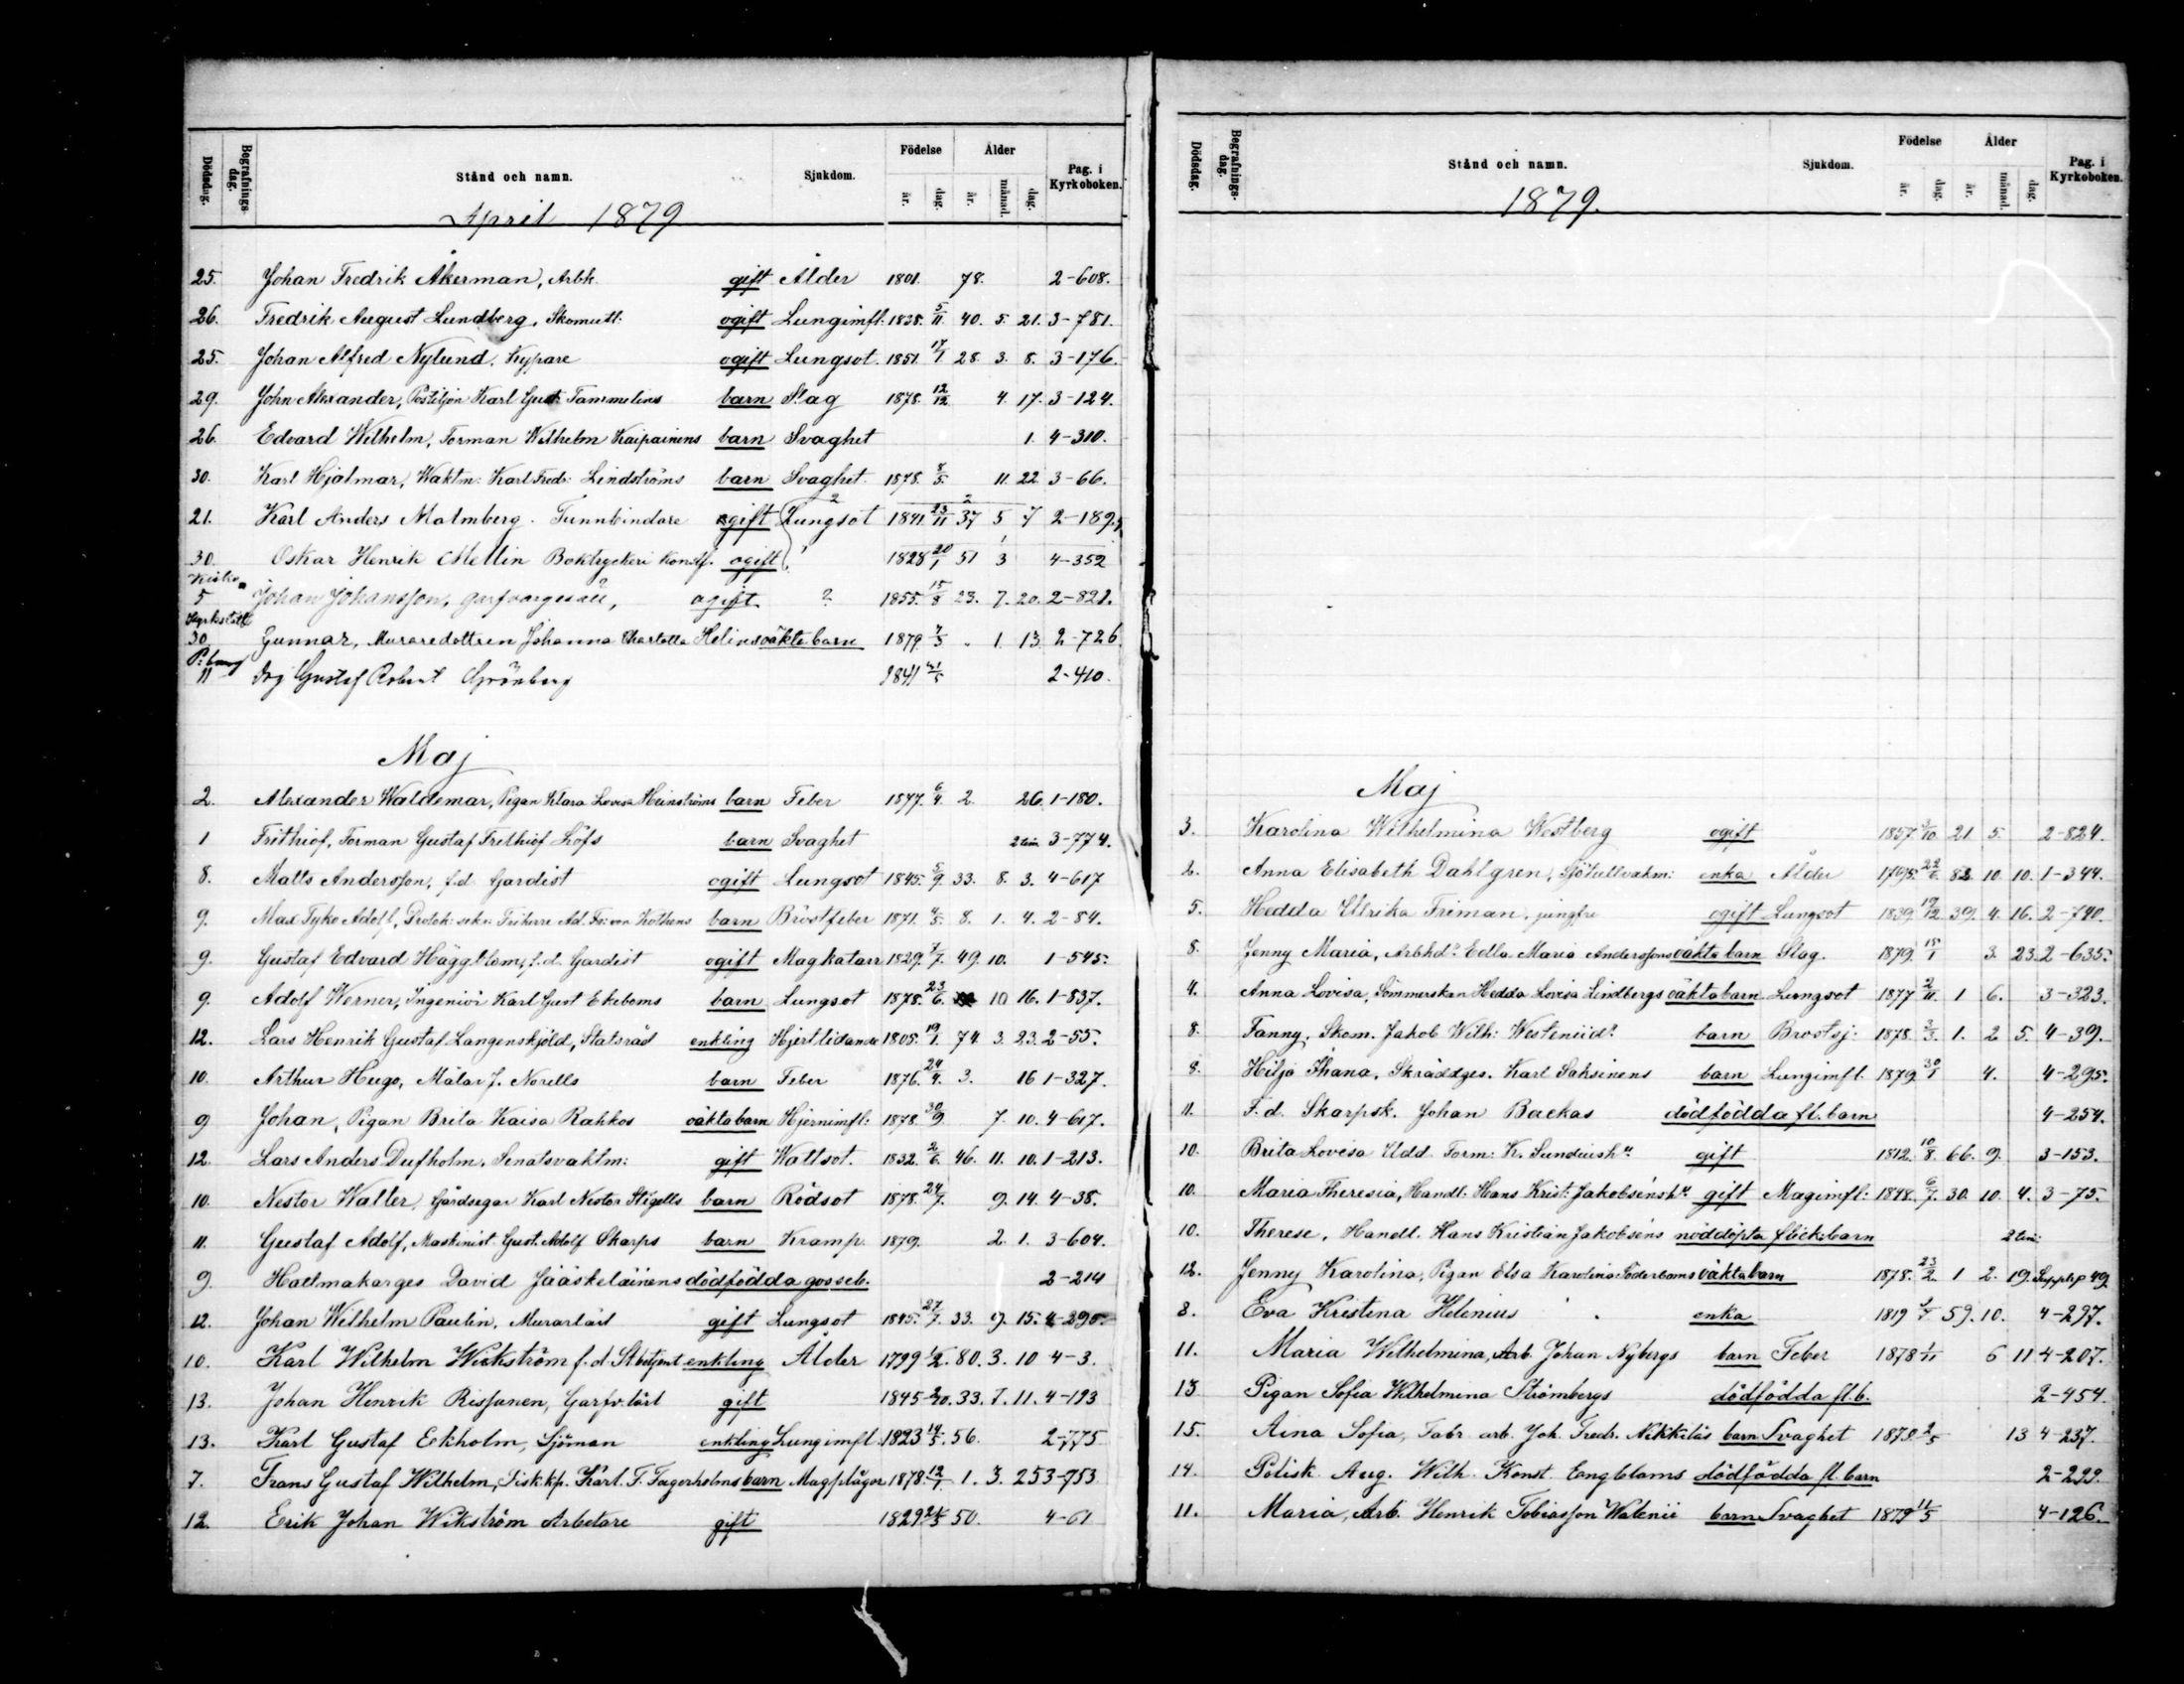 Dödsdag. Begrafnings-dag. Stånd och namn. Sjukdom. Födelse år. dag. Ålder år. månad. dag. Pag. i Kyrkoboken.
April 1879
25. Johan Fredrik Åkerman, Arbk. gift Ålder 1801. 78. 2-608.
26. Fredrik August Lundberg, Skomutt: ogift Lungimfl: 1838. 5/11 40. 5. 21. 3-781.
25. Johan Alfred Nylund, Kypare ogift Lungsot. 1851. 17/1 28. 3. 8. 3-176.
29. John Alexander, Postiljon Karl Gust: Tammelins barn Slag 1878. 12/12 4. 17. 3-124.
26. Edvard Wilhelm, Forman Wilhelm Kaipainens barn Svaghet 1. 4-310.
30. Karl Hjalmar, Waktm: Karl Fredr: Lindströms barn Svaghet 1878. 8/5 11. 22 3-66.
21. Karl Anders Malmberg. Tunnbindare gift Lungsot 1841. 23/11 37 5 7 2-189.
30. Oskar Henrik Mellin Boktryckeri konstf. ogift 1828 20/1 51 3 4-352
5 Johan Johansson, garfvaregesäll, ogift ? 1855. 15/8 23. 7. 20. 2-821.
Kyrkslätt
30 Gunnar, Muraredottren Johanna Charlotta Helins oäkta barn 1879. 7/3 1. 13. 2-726
11 Gustaf Robert Grönberg 1841 2-410.
Maj
2. Alexander Waldemar, Pigan Klara Lovisa Heinströms barn Feber 1877. 6/4 2. 26. 1-180.
1 Frithiof, Forman Gustaf Frithiof Löfs barn Svaghet 2 tim 3-774.
8. Matts Andersson, f.d. Gardist ogift Lungsot 1845. 5/9 33. 8. 3. 4-617
9. Max Tyko Adolf, Protok: sekr: Friherre Ad. Fr: von Kothens barn Bröstfeber 1871. 4/5 8. 1. 4. 2-84.
9. Gustaf Edvard Häggblom, f.d. Gardist ogift Magkatarr 1829. 7/7. 49. 10. 1-545.
9. Adolf Werner, Ingeniör Karl Gust Ekeboms barn Lungsot 1878. 23/6. 10 16. 1-837.
12. Lars Henrik Gustaf Langenskjöld, Statsråd enkling Hjertlidande 1805. 19/1. 74. 3. 23. 2-55.
10. Arthur Hugo, Målar J. Norells barn Feber 1876. 24/4. 3. 16 1-327.
9 Johan, Pigan Brita Kaisa Rahkos oäkta barn Hjernimfl: 1878. 30/9. 7. 10. 4-617.
12. Lars Anders Dufholm, Senatsvaktm: gift Wattsot. 1832. 2/6. 46. 11. 10. 1-213.
10. Nestor Walter, Gårdsegar Karl Nestor Stigells barn Rödsot 1878. 24/7. 9. 14. 4-38.
11. Gustaf Adolf, Maskinist Gust. Adolf Skarps barn Kramp. 1879. 2. 1. 3-604.
9. Hattmakarges David Jääskeläinens dödfödda gosseb. 2-214
12. Johan Wilhelm Paulin, Murarlärl gift Lungsot 1845. 27/7. 33. 9. 15. 4-290.
10. Karl Wilhelm Wickström f.d. St betjent enkling Ålder 1799 1/2. 80. 3. 10 4-3.
13. Johan Henrik Rissanen, Garfv. lärl gift 1845 2/10. 33. 7. 11. 4-193
13. Karl Gustaf Ekholm, Sjöman enkling Lungimfl. 1823 14/5. 56. 2-775
7. Frans Gustaf Wilhelm, Fisk.kp. Karl. F. Fagerholms barn Magplågor 1878. 12/1. 1. 3. 25 3-753
12. Erik Johan Wikström Arbetare gift 1829 24/3 50. 4-61
Dödsdag. Begrafnings-dag. Stånd och namn. Sjukdom. Födelse år. dag. Ålder år. månad. dag. Pag. i Kyrkoboken.
1879.
Maj
3. Karolina Wilhelmina Westberg ogift 1857. 3/10 21 5. 2-824.
2. Anna Elisabeth Dahlgren, Sjötullvakm: enka Ålder 1795. 22/6 83 10. 10. 1-344.
5. Hedda Ulrika Friman, jungfru ogift Lungsot 1839. 19/12 39. 4. 16. 2-740.
8. Jenny Maria, Arbkd:r Edla Maria Anderssons oäkta barn Slag. 1879. 15/1 3. 23. 2-635.
4. Anna Lovisa, Sömmerskan Hedda Lovisa Lindbergs oäkta barn Lungsot 1877 2/11. 1 6. 3-323.
8. Fanny, Skom. Jakob Wilh: barn Brostsj: 1878. 3/3. 1. 2 5. 4-39.
8. Hilja Jhana, Skräddges. Karl Saksinens barn Lungimfl. 1879. 30/1 4. 4-295.
11. F.d. Skarpsk. Johan Backas dödfödda fl. barn 4-254.
10. Brita Lovisa Udd Form: K. Sundvish:u gift 1812. 10/8. 66. 9. 3-153.
10. Maria Theresia, Handl: Hans Krist: Jakobsensh:u gift Magimfl: 1848. 6/7. 30. 10. 4. 3-75.
10. Therese, Handl. Hans Kristian Jakobsens nöddöpta flickebarn 2 tim:
12. Jenny Karolina, Pigan Elsa Karolina Söderboms oäkta barn 1878. 23/2. 1 2. 19. Suppl. p 49
8. Eva Kristina Helenius enka 1819 59. 10. 4-297.
11. Maria Wilhelmina, Arb. Johan Nybergs barn Feber 1878 1/11 6 11 4-207.
13 Pigan Sofia Wilhelmina Strömbergs dödfödda fl. b. 2-454
15. Aina Sofia, Fabr. arb. Joh. Fredr. Nikkiläs barn Svaghet 1879. 2/5 13 4-237.
14. Polisk. Aug. Wilh. Konst. Engbloms dödfödda fl. barn 2-299.
11. Maria, Arb. Henrik Tobiasson Walenii barn Svaghet 1879 11/5 4-126.